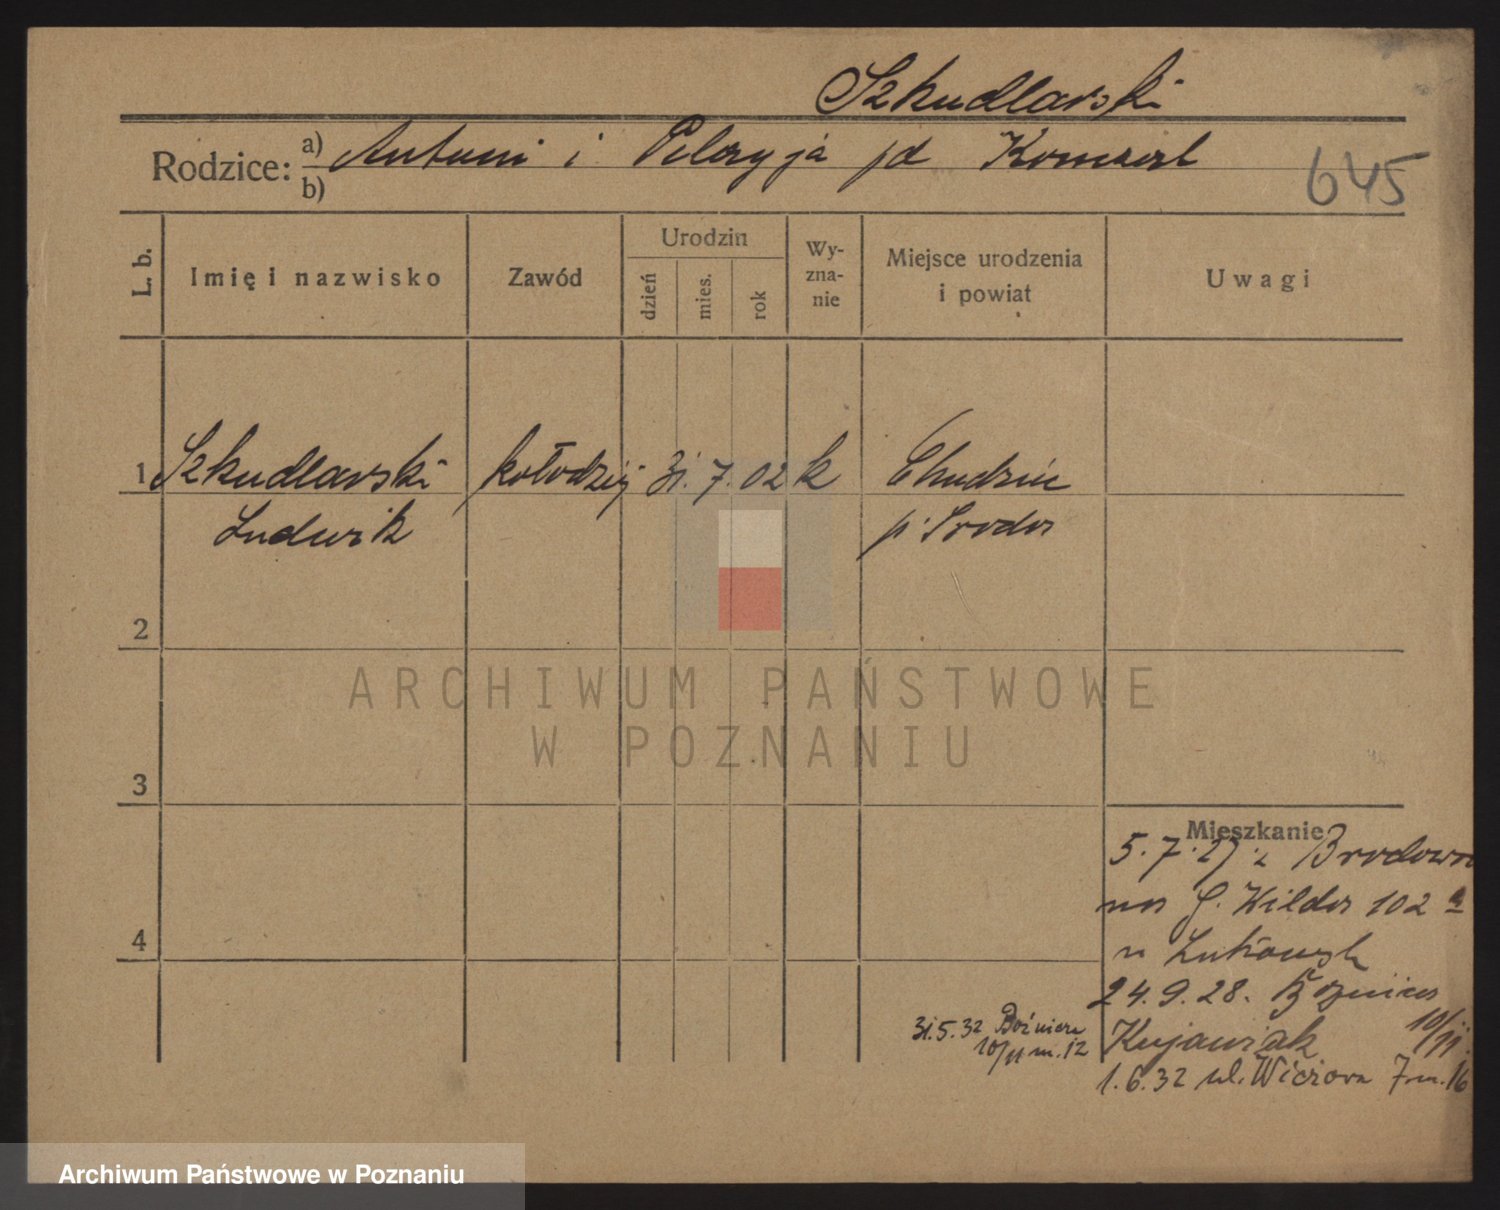 Szkudlarski
Rodzice:
a) Antoni i Pelagja
b)
645
L. b.
Imię i nazwisko
Zawód
Urodzin
dzień
mies.
rok
Wy-
zna-
nie
Miejsce urodzenia
i powiat
Uwagi
1 Szkudlarski kołodziej 31. 7. 02 k
Ludwik p. Sroda
2
3
4
ARCHIWUM PAŃSTWOWE
W POZNANIU
Mieszkanie
5. 7. 27. z Brodowa
na G. Wilda 102 a
u
24. 9. 28. Bożnicza
Kujawiak 10/11.
31.5.32 Bożnicza
10/11 m. 12
1. 6. 32 ul. 7 m. 16
Archiwum Państwowe w Poznaniu